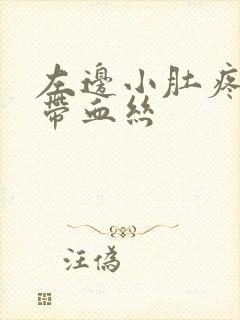 左邊小肚疼
帶血絲
汪偽